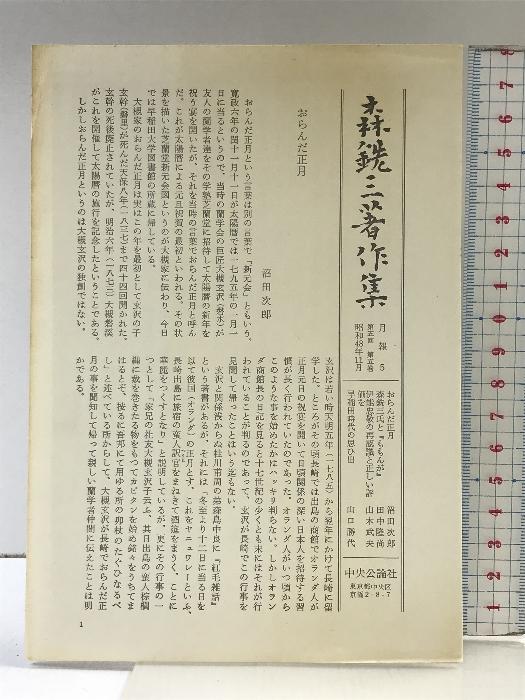 森銑三著作集
月報5
第五回 第五巻
昭和48年11月
おらんだ正月 沼田次郎
森銑三氏と『ももんが』 田中隆尚
伊能忠敬の再認識と正しい評
価を 山本武夫
早稲田時代の思ひ出 山口勝代
中央公論社
東京都中央区
京橋2-8-7
おらんだ正月
沼田次郎
おらんだ正月という言葉は別の言葉で「新元会」ともいう。
寛政六年の閏十一月十一日が太陽暦では一七九五年の一月一
日に当るというので、当時の蘭学会の巨匠大槻玄沢（磐水）が
友人の蘭学者達をその学塾芝蘭堂に招待して太陽暦の新年を
祝う宴を開いたが、それを当時の言葉でおらんだ正月と呼ん
だ。これが太陽暦による元旦祝賀の最初といわれる。その状
景を描いた芝蘭堂新元会図というのが大槻家に伝わり、今日
では早稲田大学図書館の所蔵に帰している。
大槻家のおらんだ正月は実はこの年を最初として玄沢の子
玄幹（磐里）が死んだ天保八年（一八三七）まで四十四回開かれた。
玄幹の死後廃止されていたが、明治六年（一八七三）大槻磐渓
がこれを再催して太陽暦の施行を記念したということである。
しかしおらんだ正月というのは大槻玄沢の独創ではない。
玄沢は若い時天明五年（一七八五）から翌年にかけて長崎に留
学した。ところがその頃長崎では出島の商館でオランダ人が
正月元日の祝宴を開いて日頃関係の深い日本人を招待する習
慣が長く行われていたのであった。オランダ人がいつ頃から
このような事を始めたかはハッキリ判らない。しかしオラン
ダ商館長の日記を見ると十七世紀の少くとも末にはそれが行
われていることが判るのであって、玄沢が長崎でこの行事を
見聞して帰ったことはいう迄もない。
玄沢と関係浅からぬ桂川甫周の弟森島中良に『紅毛雑話』
という著書があるが、それには「冬至より十二日に当る日を
以て彼国（オランダ）の正月とす。これをヤニュワレーといふ、
長崎出島に旅宿の蛮人訳官をまねきて酒筵をまうく、ことに
華麗をつくすとなり」と説明しているが、更にその行事の一
つとして「家兄の社友大槻玄沢子云ふ、其日出島の蛮人棕櫚
繩に裁を巻きたる物をもつてカピタンを始め銘々をうちてま
はるとぞ、按るに吾邦にて用ゆる所の卯杖のたぐひなるべ
し」と述べている所からして、大槻玄沢が長崎でおらんだ正
月の事を聞知して帰って親しい蘭学者仲間に伝えたことは明
かである。
1